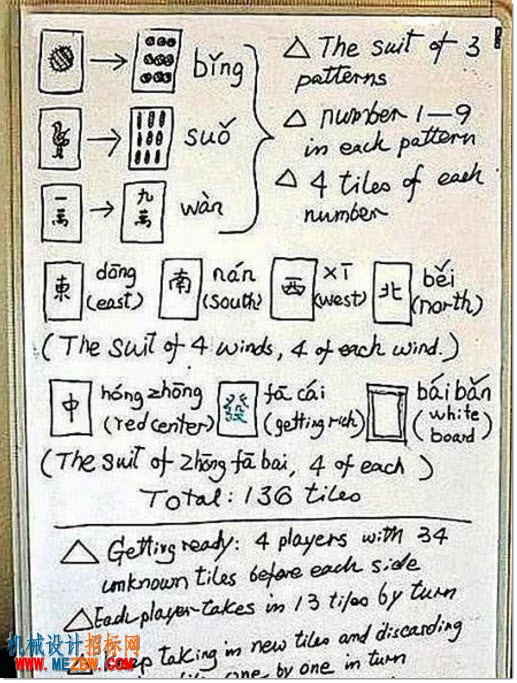 bǐng
suǒ
一萬 九萬 wàn
△ The suit of 3
patterns
△ number 1—9
in each pattern
△ 4 tiles of each
number
東 dōng 南 nán 西 xī 北 běi
(east) (south) (west) (north)
(The suit of 4 winds, 4 of each wind.)
中 hóng zhōng 發 fā cái bái bǎn
(red center) (getting rich) (white board)
(The suit of zhōng fā bai, 4 of each)
Total: 136 tiles
△ Getting ready: 4 players with 34
unknown tiles before each side
△ Each player takes in 13 tiles by turn
taking in new tiles and discarding
one by one in turn
机械设计招标网
WWW.MEZEW.COM